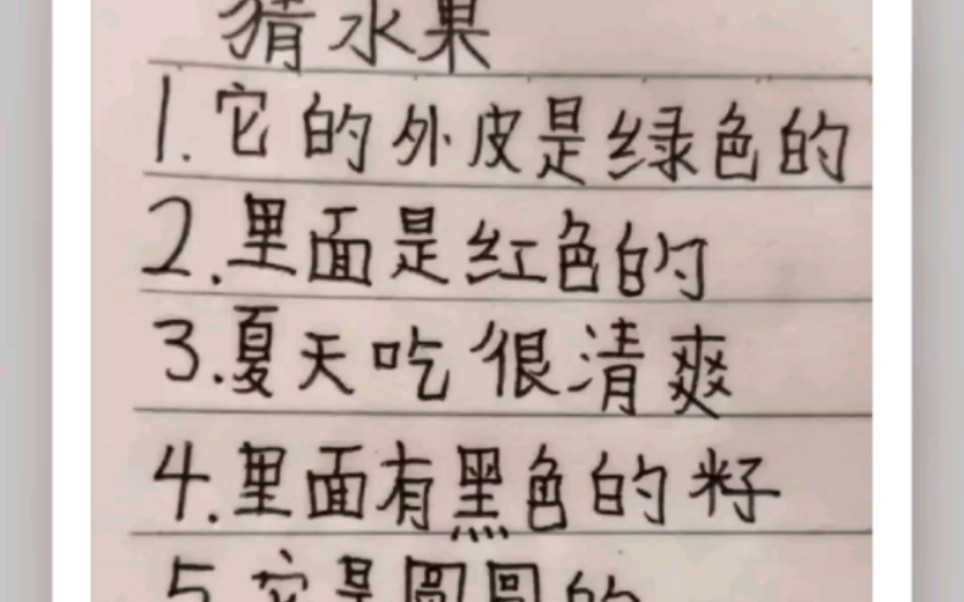 猜水果
1.它的外皮是绿色的
2.里面是红色的
3.夏天吃很清爽
4.里面有黑色的籽
5.它是圆圆的